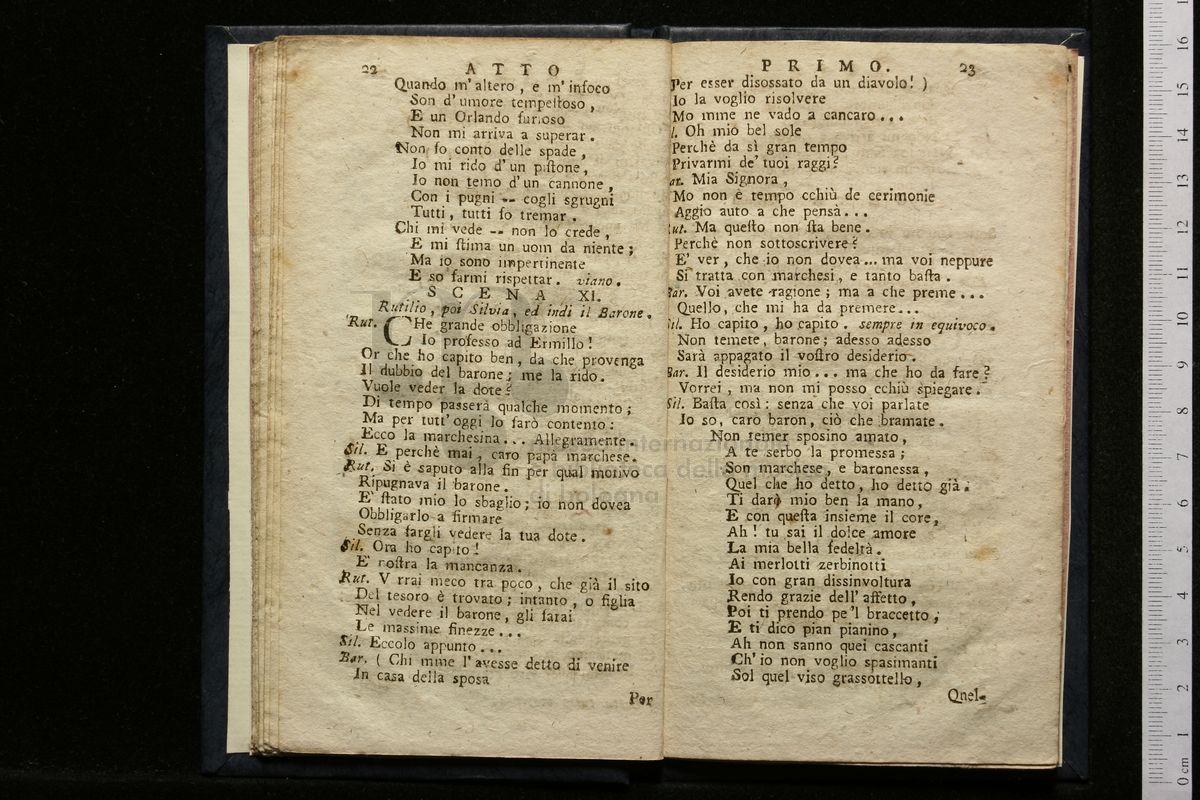 22 ATTO
Quando m'altero, e m'infoco
Son d'umore tempeſtoso,
E un Orlando furioso
Non mi arriva a superar.
Non fo conto delle spade,
Io mi rido d'un piſtone,
Io non temo d'un cannone,
Con i pugni -- cogli sgrugni
Tutti, tutti fo tremar.
Chi mi vede -- non lo crede,
E mi ſtima un uom da niente;
Ma io sono impertinente
E so farmi rispettar. viano.
SCENA XI.
Rutilio, poi Silvia, ed indi il Barone.
Rut. CHe grande obbligazione
Io professo ad Ermillo!
Or che ho capito ben, da che provenga
Il dubbio del barone; me la rido.
Vuole veder la dote?
Di tempo passerà qualche momento;
Ma per tutt'oggi lo farò contento:
Ecco la marchesina... Allegramente.
Sil. E perchè mai, caro papà marchese.
Rut. Si è saputo alla fin per qual motivo
Ripugnava il barone.
E' ſtato mio lo sbaglio; io non dovea
Obbligarlo a firmare
Senza fargli vedere la tua dote.
Sil. Ora ho capito!
E' noſtra la mancanza.
Rut. V rrai meco tra poco, che già il sito
Del tesoro è trovato; intanto, o figlia
Nel vedere il barone, gli farai
Le massime finezze...
Sil. Eccolo appunto...
Bar. ( Chi mme l'avesse detto di venire
In casa della sposa
Per
PRIMO. 23
Per esser disossato da un diavolo! )
Io la voglio risolvere
Mo mme ne vado a cancaro...
l. Oh mio bel sole
Perchè da sì gran tempo
Privarmi de' tuoi raggi?
ar. Mia Signora,
Mo non è tempo cchiù de cerimonie
Aggio auto a che pensà...
ut. Ma queſto non ſta bene.
Perchè non sottoscrivere?
E' ver, che io non dovea... ma voi neppure
Si tratta con marchesi, e tanto baſta.
Bar. Voi avete ragione; ma a che preme...
Quello, che mi ha da premere...
Sil. Ho capito, ho capito. sempre in equivoco.
Non temete, barone; adesso adesso
Sarà appagato il voſtro desiderio.
Bar. Il desiderio mio... ma che ho da fare?
Vorrei, ma non mi posso cchiù spiegare.
Sil. Baſta così: senza che voi parlate
Io so, caro baron, ciò che bramate.
Non temer sposino amato,
A te serbo la promessa;
Son marchese, e baronessa,
Quel che ho detto, ho detto già.
Ti darò mio ben la mano,
E con queſta insieme il core,
Ah! tu sai il dolce amore
La mia bella fedeltà.
Ai merlotti zerbinotti
Io con gran dissinvoltura
Rendo grazie dell'affetto,
Poi ti prendo pe'l braccetto,
E ti dico pian pianino,
Ah non sanno quei cascanti
Ch'io non voglio spasimanti
Sol quel viso grassottello,
Quel-